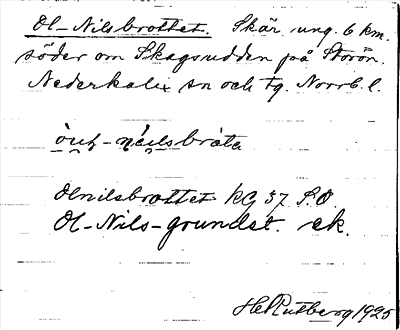 Ol-Nilsbrottet. Skär ung. 6 km.
söder om Skagsudden på Storön.
Nederkalix sn och tg. Norrb. l.
Olnilsbrottet KG 37 S.O
Ol-Nils-grundet. ek.
H Rutberg 1925